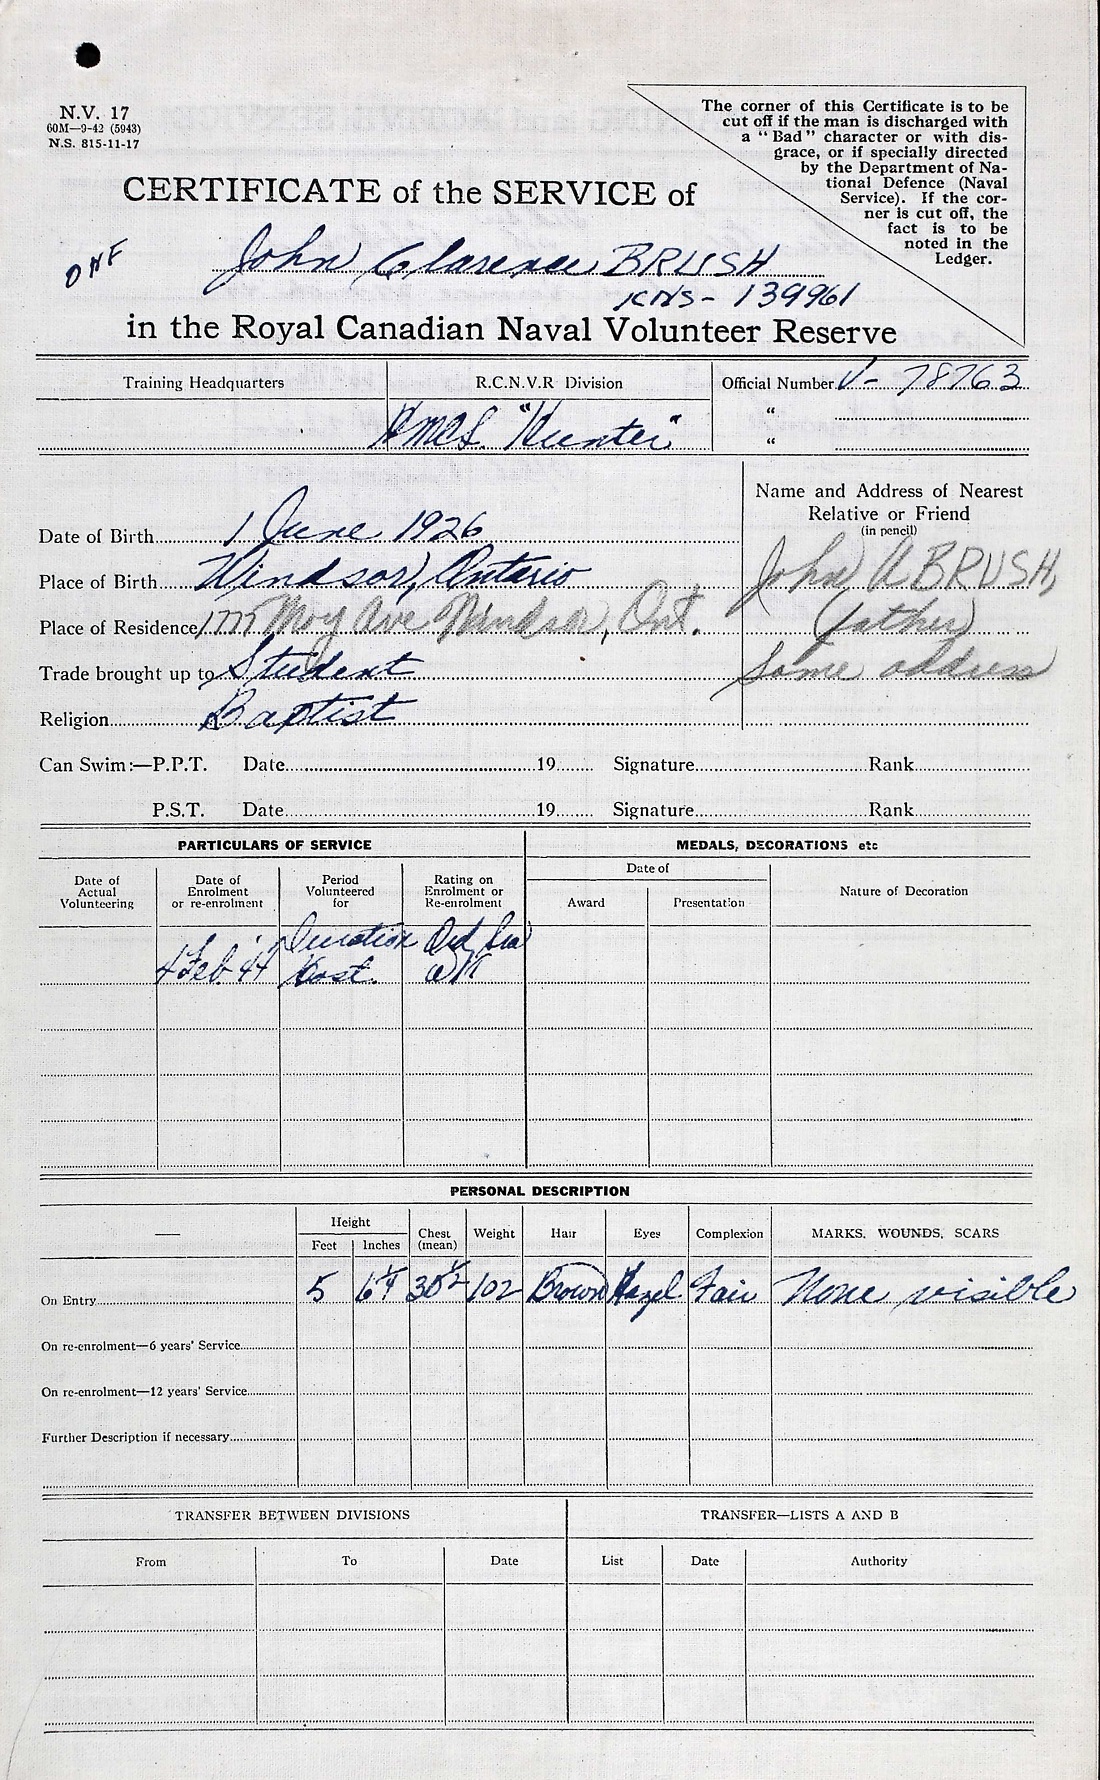 N.V. 17
60M—9-42 (5943)
N.S. 815-11-17
The corner of this Certificate is to be
cut off if the man is discharged with
a "Bad" character or with dis-
grace, or if specially directed
by the Department of Na-
tional Defence (Naval
Service). If the cor-
ner is cut off, the
fact is to be
noted in the
Ledger.
CERTIFICATE of the SERVICE of
John Clarence BRUSH
139961
in the Royal Canadian Naval Volunteer Reserve
Training Headquarters R.C.N.V.R Division Official Number V- 78763
HMCS. "Hunter" "
"
Name and Address of Nearest
Relative or Friend
(in pencil)
Date of Birth 1 June 1926
Place of Birth Windsor, Ontario John A BRUSH,
Place of Residence Moy Ave Windsor, Ont. (father)
Trade brought up to Student Same address
Religion Baptist
Can Swim:—P.P.T. Date 19 Signature Rank
P.S.T. Date 19 Signature Rank
PARTICULARS OF SERVICE MEDALS, DECORATIONS etc
Date of Actual Volunteering Date of Enrolment or re-enrolment Period Volunteered for Rating on Enrolment or Re-enrolment Date of Nature of Decoration
Award Presentation
4 Feb. '44 Duration Ord Sea
PERSONAL DESCRIPTION
— Height Chest (mean) Weight Hair Eyes Complexion MARKS, WOUNDS, SCARS
Feet Inches
On Entry 5 6¼ 30½ 102 Brown Hazel Fair None visible
On re-enrolment—6 years' Service
On re-enrolment—12 years' Service
Further Description if necessary
TRANSFER BETWEEN DIVISIONS TRANSFER—LISTS A AND B
From To Date List Date Authority